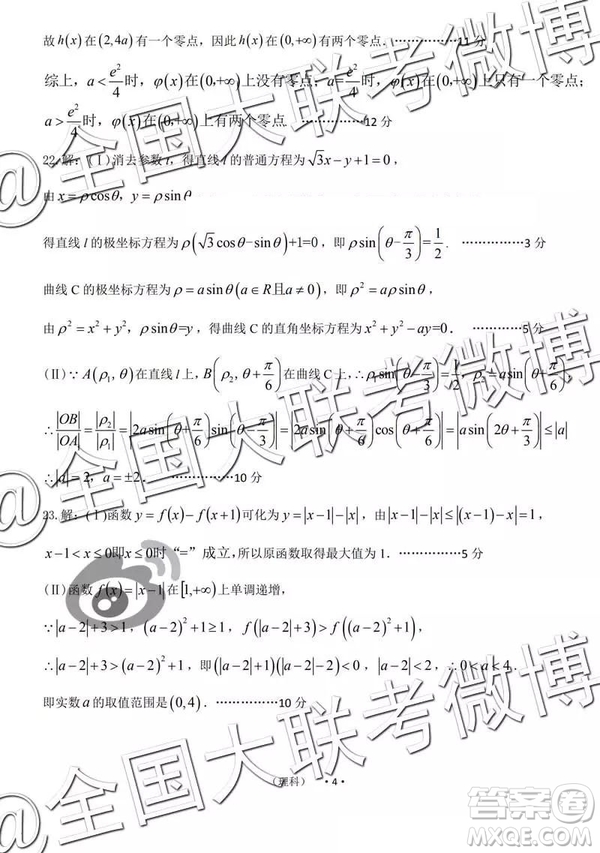 故h(x)在(2,4a)有一个零点，因此h(x)在(0,+∞)有两个零点．……………11分
综上，a<e²/4时，φ(x)在(0,+∞)上没有零点；a=e²/4时，φ(x)在(0,+∞)上只有一个零点；
a>e²/4时，φ(x)在(0,+∞)上有两个零点．……………12分
22.解：(Ⅰ)消去参数t，得直线l的普通方程为√3x−y+1=0，
由x=ρcosθ，y=ρsinθ
得直线l的极坐标方程为ρ(√3cosθ−sinθ)+1=0，即ρsin(θ−π/3)=1/2．……………3分
曲线C的极坐标方程为ρ=asinθ(a∈R且a≠0)，即ρ²=aρsinθ，
由ρ²=x²+y²，ρsinθ=y，得曲线C的直角坐标方程为x²+y²−ay=0．…………5分
(Ⅱ)∵A(ρ₁,θ)在直线l上，B(ρ₂,θ+π/6)在曲线C上，∴ρ₁sin(θ−π/3)=1/2，
∴|OB|/|OA|=|ρ₂|/|ρ₁|=|2asin(θ+π/6)sin(θ−π/3)|=|2asin(θ+π/6)cos(θ+π/6)|=|asin(2θ+π/3)|≤|a|
∴|a|=2，a=±2．……………10分
23.解：(Ⅰ)函数y=f(x)−f(x+1)可化为y=|x−1|−|x|，由|x−1|−|x|≤|(x−1)−x|=1，
x−1<x≤0即x≤0时“=”成立，所以原函数取得最大值为1．……………5分
(Ⅱ)函数f(x)=|x−1|在[1,+∞)上单调递增，
∵|a−2|+3>1，(a−2)²+1≥1，f(|a−2|+3)>f((a−2)²+1)，
∴|a−2|+3>(a−2)²+1，即(|a−2|+1)(|a−2|−2)<0，|a−2|<2，∴0<a<4．
即实数a的取值范围是(0,4)．……………10分
（理科） •4•
@全国大联考微博
@全国大联考微博
@全国大联考微博
答案卷
MXQE.COM